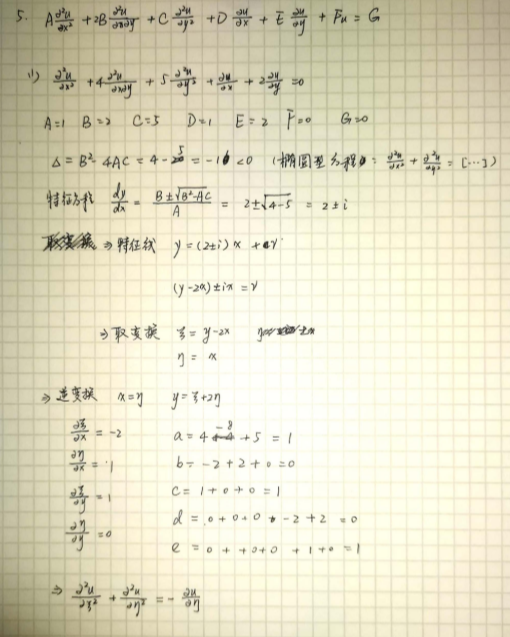 5. A ∂²u/∂x² + 2B ∂²u/∂x∂y + C ∂²u/∂y² + D ∂u/∂x + E ∂u/∂y + Fu = G
(1) ∂²u/∂x² + 4 ∂²u/∂x∂y + 5 ∂²u/∂y² + ∂u/∂x + 2 ∂u/∂y = 0
A=1 B=2 C=5 D=1 E=2 F=0 G=0
Δ = B² - 4AC = 4 - 5 = -1 < 0 (椭圆型方程: ∂²u/∂x² + ∂²u/∂y² = [...])
特征方程 dy/dx = (B±√(B²-AC))/A = 2±√(4-5) = 2±i
⇒ 特征线 y = (2±i)x + γ
(y-2x)±ix = γ
⇒ 取变换 ξ = y-2x
η = x
⇒ 逆变换 x=η y=ξ+2η
∂ξ/∂x = -2 a = 4 -8 +5 = 1
∂η/∂x = 1 b = -2+2+0=0
∂ξ/∂y = 1 c = 1+0+0=1
∂η/∂y = 0 d = 0+0+0 -2+2 =0
e = 0 + +0+0 +1+0 =1
⇒ ∂²u/∂ξ² + ∂²u/∂η² = - ∂u/∂η